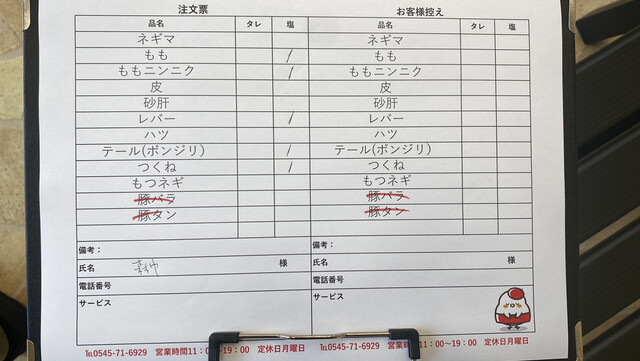 注文票 お客様控え
品名 タレ 塩 品名 タレ 塩
ネギマ ネギマ
もも / もも
ももニンニク / ももニンニク
皮 皮
砂肝 砂肝
レバー / レバー
ハツ ハツ
テール(ボンジリ) / テール(ボンジリ)
つくね / つくね
もつネギ もつネギ
豚バラ 豚バラ
豚タン 豚タン
備考: 備考:
氏名 様 氏名 様
電話番号 電話番号
サービス サービス
℡0545-71-6929 営業時間11:00~19:00 定休日月曜日 ℡0545-71-6929 営業時間11:00~19:00 定休日月曜日